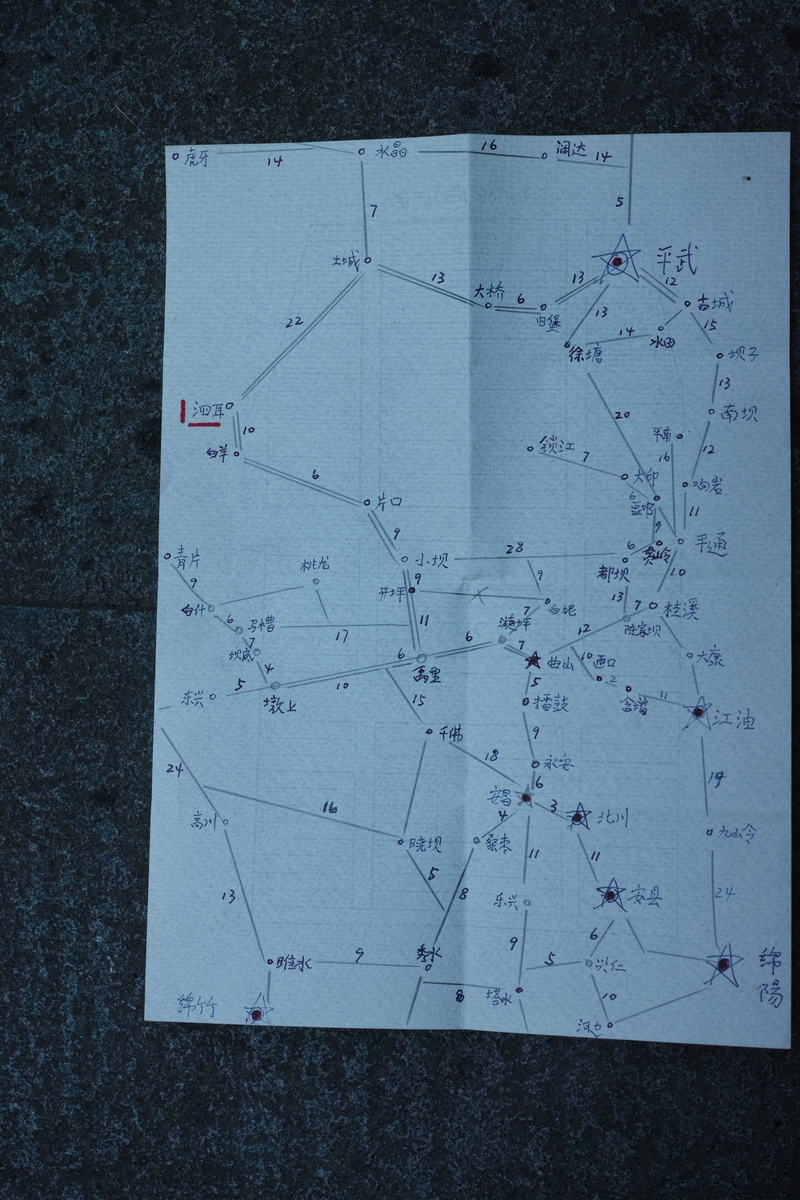 虎牙
14
水晶
16
阔达
14
7
5
土城
13
大桥
6
旧堡
13
平武
12
古城
13
14
水田
15
徐塘
坝子
22
13
泗耳
20
南坝
10
白羊
锁江
7
平南
16
12
大印
响岩
6
6
豆叩
11
片口
9
9
小坝
28
6
平通
都坝
青片
9
桃龙
9
开坪
9
10
13
白什
7
白坭
7
桂溪
6
马槽
17
11
漩坪
陈家坝
7
坎底
6
6
7
曲山
12
10
大康
4
禹里
5
2
东兴
5
墩上
10
擂鼓
含增
11
江油
15
千佛
9
24
18
永安
19
6
安昌
3
北川
16
4
高川
晓坝
桑枣
11
11
九岭
5
8
安县
13
乐兴
24
6
9
睢水
9
秀水
5
兴仁
绵阳
绵竹
8
塔水
10
河边